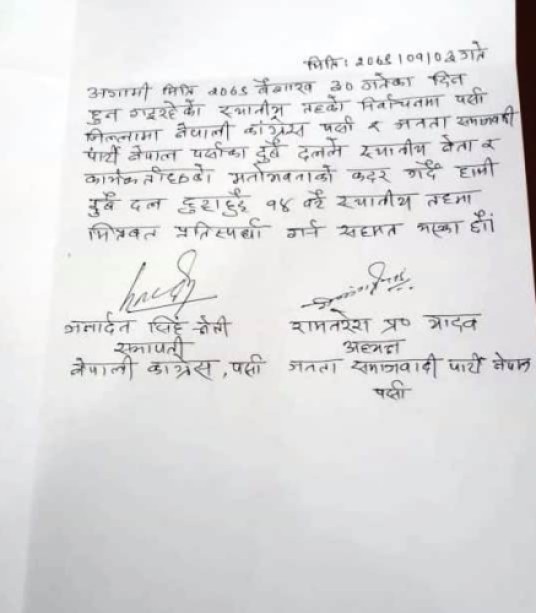 मिति: २०७९।०१।०३ गते
आगामी मिति २०७९ बैशाख ३० गतेका दिन
हुन गइरहेको स्थानीय तहको निर्वाचनमा पर्सा
जिल्लामा नेपाली कांग्रेस पर्सा र जनता समाजवादी
पार्टी नेपाल पर्साका दुवै दलले स्थानीय नेता र
कार्यकर्ताहरुको मनोभावनाको कदर गर्दै हामी
दुवै दल छुट्टाछुट्टै १४ वटै स्थानीय तहमा
मित्रवत प्रतिस्पर्धा गर्न सहमत भएका छौं।
जनार्दन सिंह क्षेत्री
सभापती
नेपाली कांग्रेस, पर्सा
रामनरेश प्र० यादव
अध्यक्ष
जनता समाजवादी पार्टी नेपाल
पर्सा